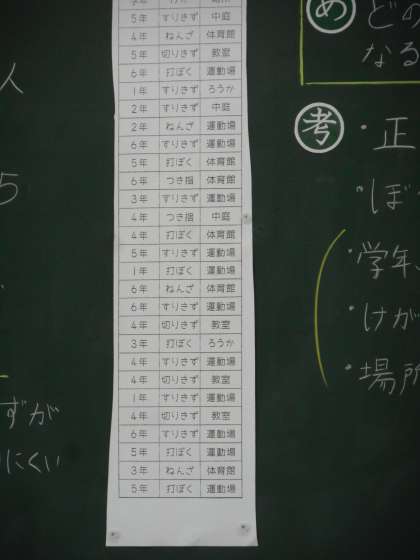 5年 すりきず 中庭
4年 ねんざ 体育館
5年 切りきず 教室
6年 打ぼく 運動場
1年 すりきず ろうか
2年 すりきず 中庭
2年 ねんざ 運動場
6年 すりきず 運動場
5年 打ぼく 体育館
6年 つき指 体育館
3年 すりきず 運動場
4年 つき指 中庭
4年 打ぼく 体育館
5年 すりきず 運動場
1年 打ぼく 運動場
6年 ねんざ 体育館
6年 すりきず 運動場
4年 切りきず 教室
3年 打ぼく ろうか
4年 すりきず 運動場
4年 切りきず 教室
1年 すりきず 運動場
4年 切りきず 教室
6年 すりきず 運動場
5年 打ぼく 運動場
3年 ねんざ 体育館
5年 打ぼく 運動場
人
5
ずが
にくい
め ど
なる
考 ・正
ぼ
・学年、
・けが
・場所